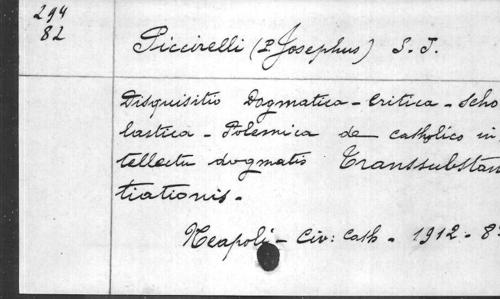 294
82
Piccirelli (P. Josephus) S. J.
Disquisitio Dogmatica - Critica - Scho
lastica - Polemica de catholico in-
tellectu dogmatis Transsubstan
tiationis.
Neapoli - Civ: Cath - 1912 - 8º